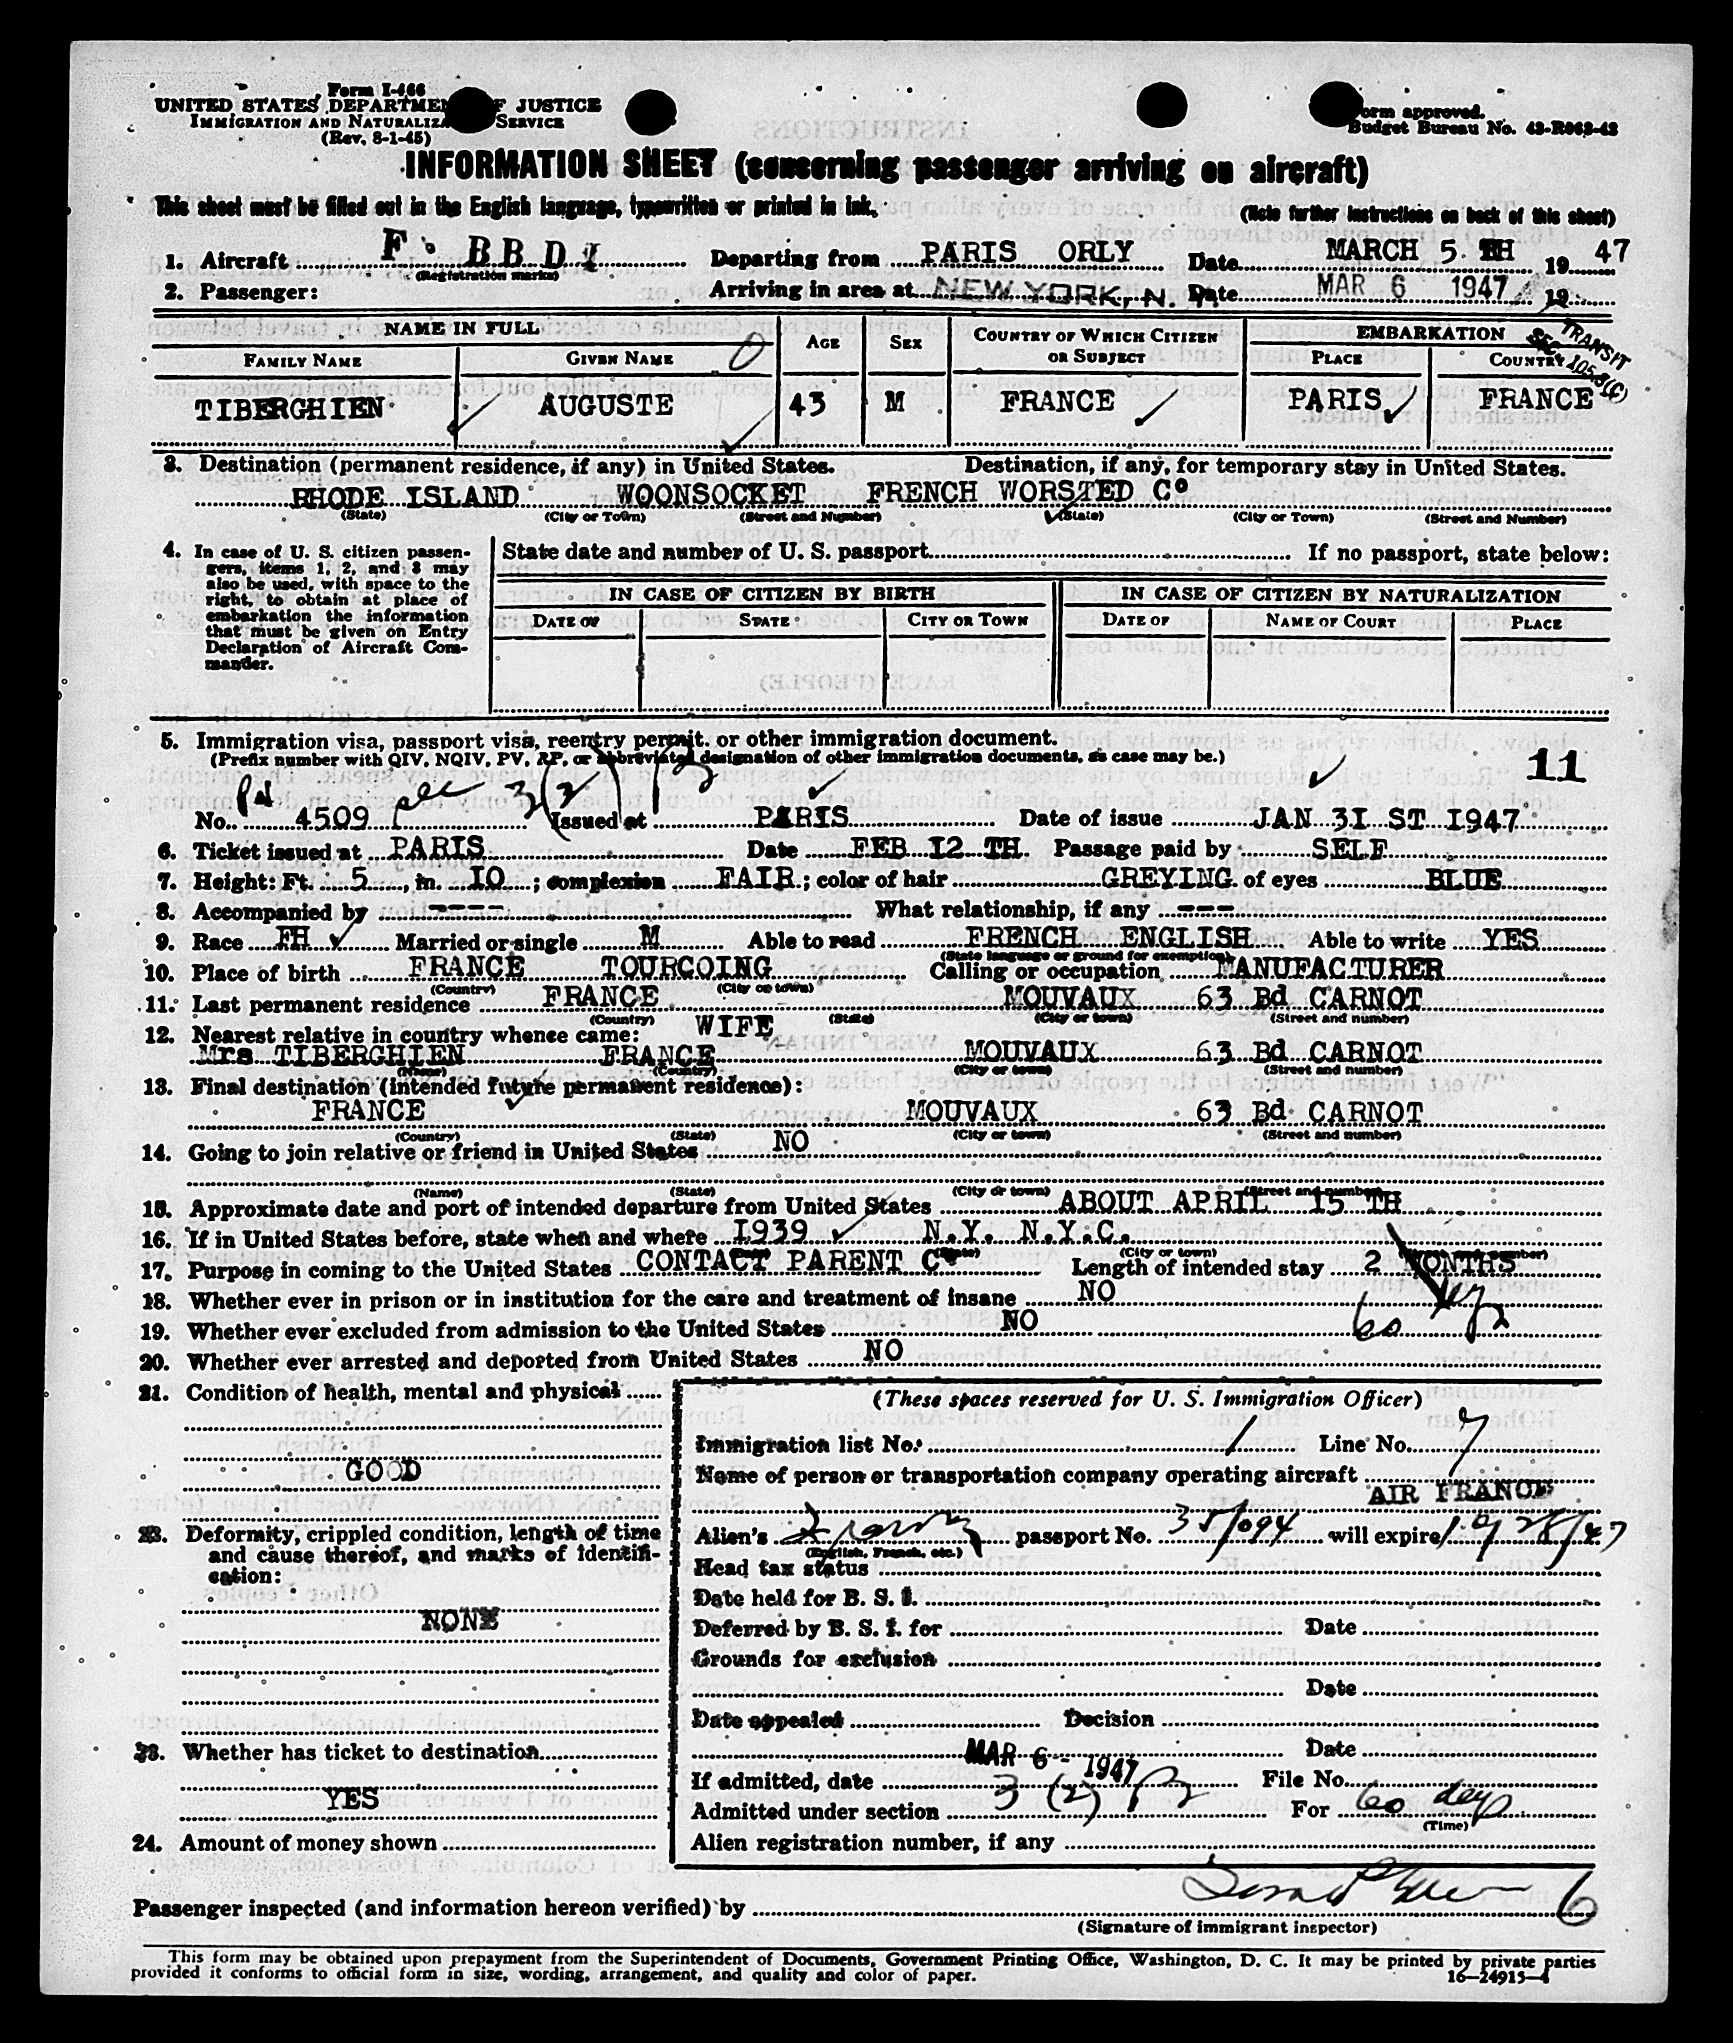 Form I-466
UNITED STATES DEPARTMENT OF JUSTICE
IMMIGRATION AND NATURALIZATION SERVICE
(Rev. 8-1-45)
Form approved.
Budget Bureau No. 43-R063-42
INFORMATION SHEET (concerning passenger arriving on aircraft)
This sheet must be filled out in the English language, typewritten or printed in ink.
(Note further instructions on back of this sheet)
1. Aircraft F. BBDI Departing from PARIS ORLY Date MARCH 5 TH 19 47
(Registration marks)
2. Passenger: Arriving in area at NEW YORK, N. Y. Date MAR 6 1947 19
TRANSIT
SEC. 105.3(C)
NAME IN FULL AGE SEX COUNTRY OF WHICH CITIZEN OR SUBJECT EMBARKATION
FAMILY NAME GIVEN NAME PLACE COUNTRY
TIBERGHIEN AUGUSTE 43 M FRANCE PARIS FRANCE
3. Destination (permanent residence, if any) in United States. Destination, if any, for temporary stay in United States.
RHODE ISLAND WOONSOCKET FRENCH WORSTED Co
(State) (City or Town) (Street and Number) (State) (City or Town) (Street and Number)
4. In case of U. S. citizen passengers, items 1, 2, and 3 may also be used, with space to the right, to obtain at place of embarkation the information that must be given on Entry Declaration of Aircraft Commander.
State date and number of U. S. passport If no passport, state below:
IN CASE OF CITIZEN BY BIRTH IN CASE OF CITIZEN BY NATURALIZATION
DATE OF STATE CITY OR TOWN DATE OF NAME OF COURT PLACE
5. Immigration visa, passport visa, reentry permit, or other immigration document.
(Prefix number with QIV, NQIV, PV, RP, or abbreviated designation of other immigration documents, as case may be.)
11
PV sec 3(2)
No. 4509 Issued at PARIS Date of issue JAN 31 ST 1947
6. Ticket issued at PARIS Date FEB 12 TH Passage paid by SELF
7. Height: Ft. 5, in. 10; complexion FAIR; color of hair GREYING of eyes BLUE
8. Accompanied by ---- What relationship, if any ---
9. Race FH Married or single M Able to read FRENCH ENGLISH Able to write YES
(State language or ground for exemption)
10. Place of birth FRANCE TOURCOING Calling or occupation MANUFACTURER
(Country) (City or town)
11. Last permanent residence FRANCE MOUVAUX 63 Bd CARNOT
(Country) (State) (City or town) (Street and number)
12. Nearest relative in country whence came: WIFE
Mrs TIBERGHIEN FRANCE MOUVAUX 63 Bd CARNOT
(Name) (Country) (City or town) (Street and number)
13. Final destination (intended future permanent residence):
FRANCE MOUVAUX 63 Bd CARNOT
(Country) (State) (City or town) (Street and number)
14. Going to join relative or friend in United States NO
(Name) (State) (City or town) (Street and number)
15. Approximate date and port of intended departure from United States ABOUT APRIL 15 TH
16. If in United States before, state when and where 1939 N.Y. N.Y.C.
(State) (City or town) (Street and number)
17. Purpose in coming to the United States CONTACT PARENT Co Length of intended stay 2 MONTHS
18. Whether ever in prison or in institution for the care and treatment of insane NO
60 days
19. Whether ever excluded from admission to the United States NO
20. Whether ever arrested and deported from United States NO
21. Condition of health, mental and physical
GOOD
22. Deformity, crippled condition, length of time and cause thereof, and marks of identification:
NONE
23. Whether has ticket to destination
YES
24. Amount of money shown
(These spaces reserved for U. S. Immigration Officer)
Immigration list No. 1 Line No. 7
Name of person or transportation company operating aircraft
AIR FRANCE
Alien's French passport No. 35/094 will expire
(English, French, etc.)
Head tax status
Date held for B. S. I.
Deferred by B. S. I. for Date
Grounds for exclusion
Date
Date appealed Decision
Date
If admitted, date MAR 6 - 1947 File No.
Admitted under section 3 (2) For 60 days
(Time)
Alien registration number, if any
Passenger inspected (and information hereon verified) by 6
(Signature of immigrant inspector)
This form may be obtained upon prepayment from the Superintendent of Documents, Government Printing Office, Washington, D. C. It may be printed by private parties
provided it conforms to official form in size, wording, arrangement, and quality and color of paper. 16—24915-4